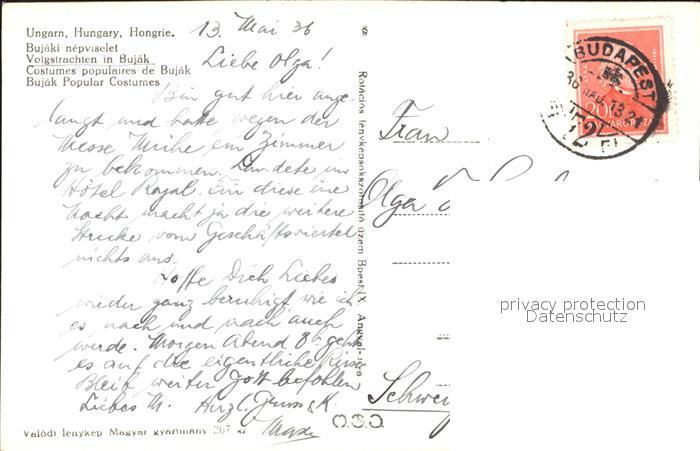 Ungarn, Hungary, Hongrie.
Bujáki népviselet
Volgstrachten in Buják
Costumes populaires de Buják
Buják Popular Costumes
13. Mai 36
Liebe Olga!
Bin gut hier ange
langt und hatte wegen der
Messe Mühe ein Zimmer
zu bekommen. Landete im
Hôtel Royal. Für diese eine
Nacht macht ja die weitere
Strecke vom Geschäftsviertel
nichts aus.
Hoffe Dich Liebes
wieder ganz beruhigt wie ich
es nach und nach auch
werde. Morgen Abend 8h geht
es auf die eigentliche Reise
Bleib weiter Gott befohlen
Liebes M. Herzl. Gruss & K
Valódi fénykép Magyar gyártmány 367 sz
Rotációs fényképsokszorosító üzem Bpest, IX.
O.S.O.
Frau
Olga
Schwei
BUDAPEST
36 MÁJ. 13. 2
72
20
MAGYARORSZÁG
privacy protection
Datenschutz